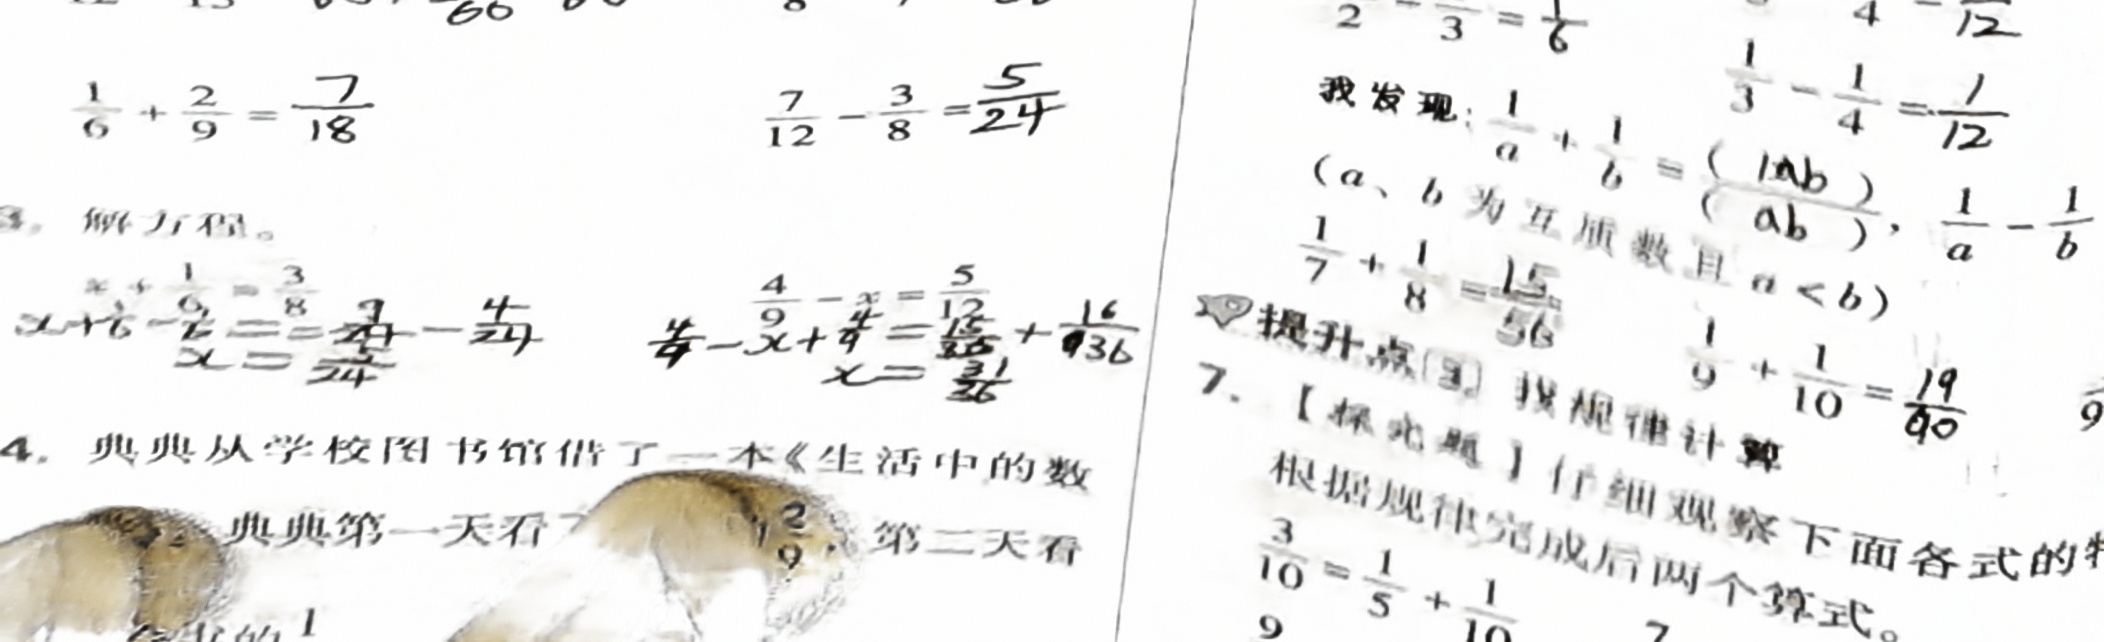 1/6 + 2/9 = 7/18
7/12 - 3/8 = 5/24
3. 解方程。
x + 1/6 = 3/8
x + 1/6 - 1/6 = = 9/24 - 4/24
x = 5/24
4/9 - x = 5/12
4/9 - x + 4/9 = 15/36 + 16/36
x = 31/36
4. 典典从学校图书馆借了一本《生活中的数
典典第一天看了 2/9, 第二天看
书的 1
2 - 3 = 1/6
4 - 12
1/3 - 1/4 = 1/12
我发现: 1/a + 1/b = ( ab ) / ( ab ), 1/a - 1/b
(a、b 为互质数且 a < b)
1/7 + 1/8 = 15/56
1/9 + 1/10 = 19/90
9
提升点 3 找规律计算
7. 【探究题】仔细观察下面各式的特
根据规律完成后两个算式。
3/10 = 1/5 + 1/10
9
7